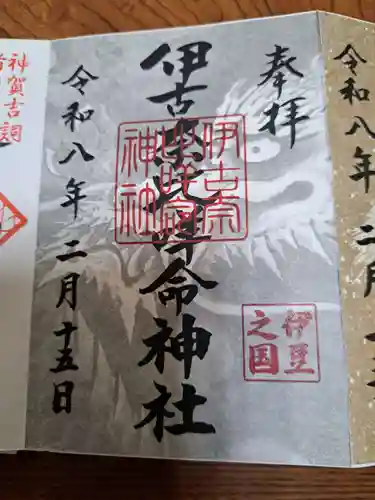 令和八年
奉拝
伊古奈比咩命神社
伊古奈
比咩命
神社
伊豆
之国
令和八年二月十五日
神賀吉詞